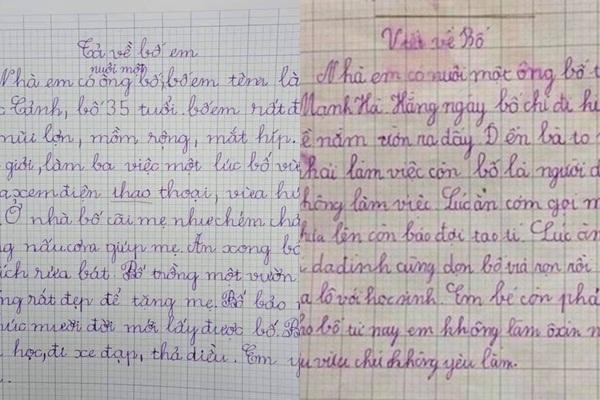 Tả về bố em
nuôi một
Nhà em có ông bố, bố em tên là
Cảnh, bố 35 tuổi. bố em rất đ
mũi lợn, mồm rộng, mắt híp.
giỏi, làm ba việc một lúc bố vừa
xem điện thao thoại, vừa hú
Ở nhà bố cãi mẹ như chém ch
nấu cơm giúp mẹ. Ăn xong bố
ích rửa bát. Bố trồng một vườn
rất đẹp để tăng mẹ. Bố bảo
mười đời mới lấy được bố. B
học, đi xe đạp, thả diều. Em y
Viết về Bố
Nhà em có nuôi một ông bố t
Mạnh Hà. Hằng ngày bố chỉ đi h
về nằm ườn ra đấy. Đến bà to
phải làm việc còn bố là người đ
không làm việc. Lúc ăn cơm gọi m
lên còn bảo đợi tao tí. Lúc ăn
gia đình cùng dọn bố vừa nọn rồi
a lô với học sinh. Em bé còn phả
bảo bố từ nay em không làm ôxin n
chứ không yêu lắm.